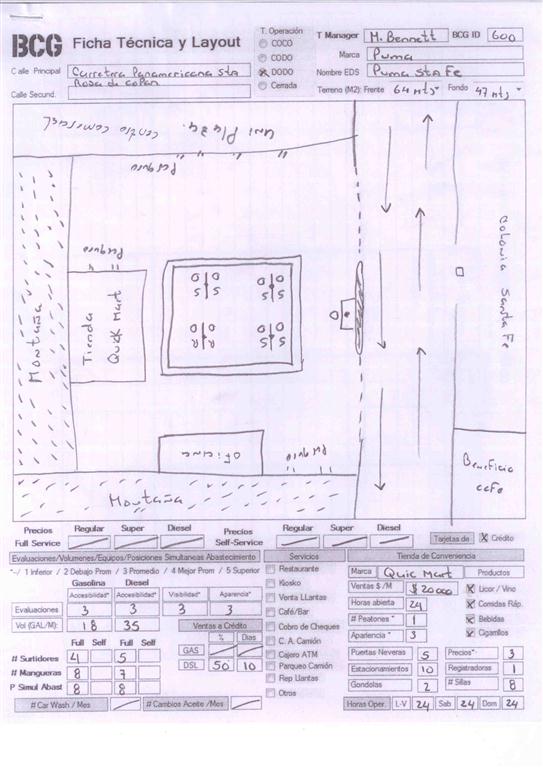 BCG Ficha Técnica y Layout
T. Operación
COCO
CODO
DODO
Cerrada
T Manager M. Bennett BCG ID 600
Marca Puma
Nombre EDS Puma Sta Fe
Terreno (M2): Frente 64 mts Fondo 47 mts
Calle Principal Carretera Panamericana Sta
Rosa de Copan
Calle Secund.
Uni Plaza.
centro comercial
Parqueo
Parqueo
Montaña
Tienda
Quick Mart
D D
S S
S S
D D
R S
R S
D
oficina
Parqueo
Montaña
colonia Santa Fe
Beneficio
cafe
Precios Regular Super Diesel Precios Regular Super Diesel
Full Service Self-Service
Tarjetas de X Crédito
Evaluaciones/Volumenes/Equipos/Posiciones Simultaneas Abastecimiento
Servicios
Tienda de Conveniencia
*-/ 1 Inferior / 2 Debajo Prom / 3 Promedio / 4 Mejor Prom / 5 Superior
Gasolina Diesel
Accesibilidad* Accesibilidad* Visibilidad* Aparencia*
Evaluaciones 3 3 3 3
Vol (GAL/M): 18 35
Ventas a Crédito
% Dias
GAS
DSL 50 10
Full Self Full Self
# Surtidores 4 5
# Mangueras 8 7
P Simul Abast 8 8
# Car Wash / Mes
# Cambios Aceite /Mes
Restaurante
Kiosko
Venta LLantas
Café/Bar
Cobro de Cheques
C. A. Camión
Cajero ATM
Parqueo Camión
Rep Llantas
Otros
Marca Quic Mart Productos
Ventas $ /M $ 20000 X Licor / Vino
Horas abierta 24 X Comidas Ráp.
# Peatones * 1 X Bebidas
Aparencia * 3 X Cigarrilos
Puertas Neveras 5 Precios*: 3
Estacionamientos 10 Registradoras 1
Gondolas 2 # Sillas 8
Horas Oper. L-V 24 Sab 24 Dom 24